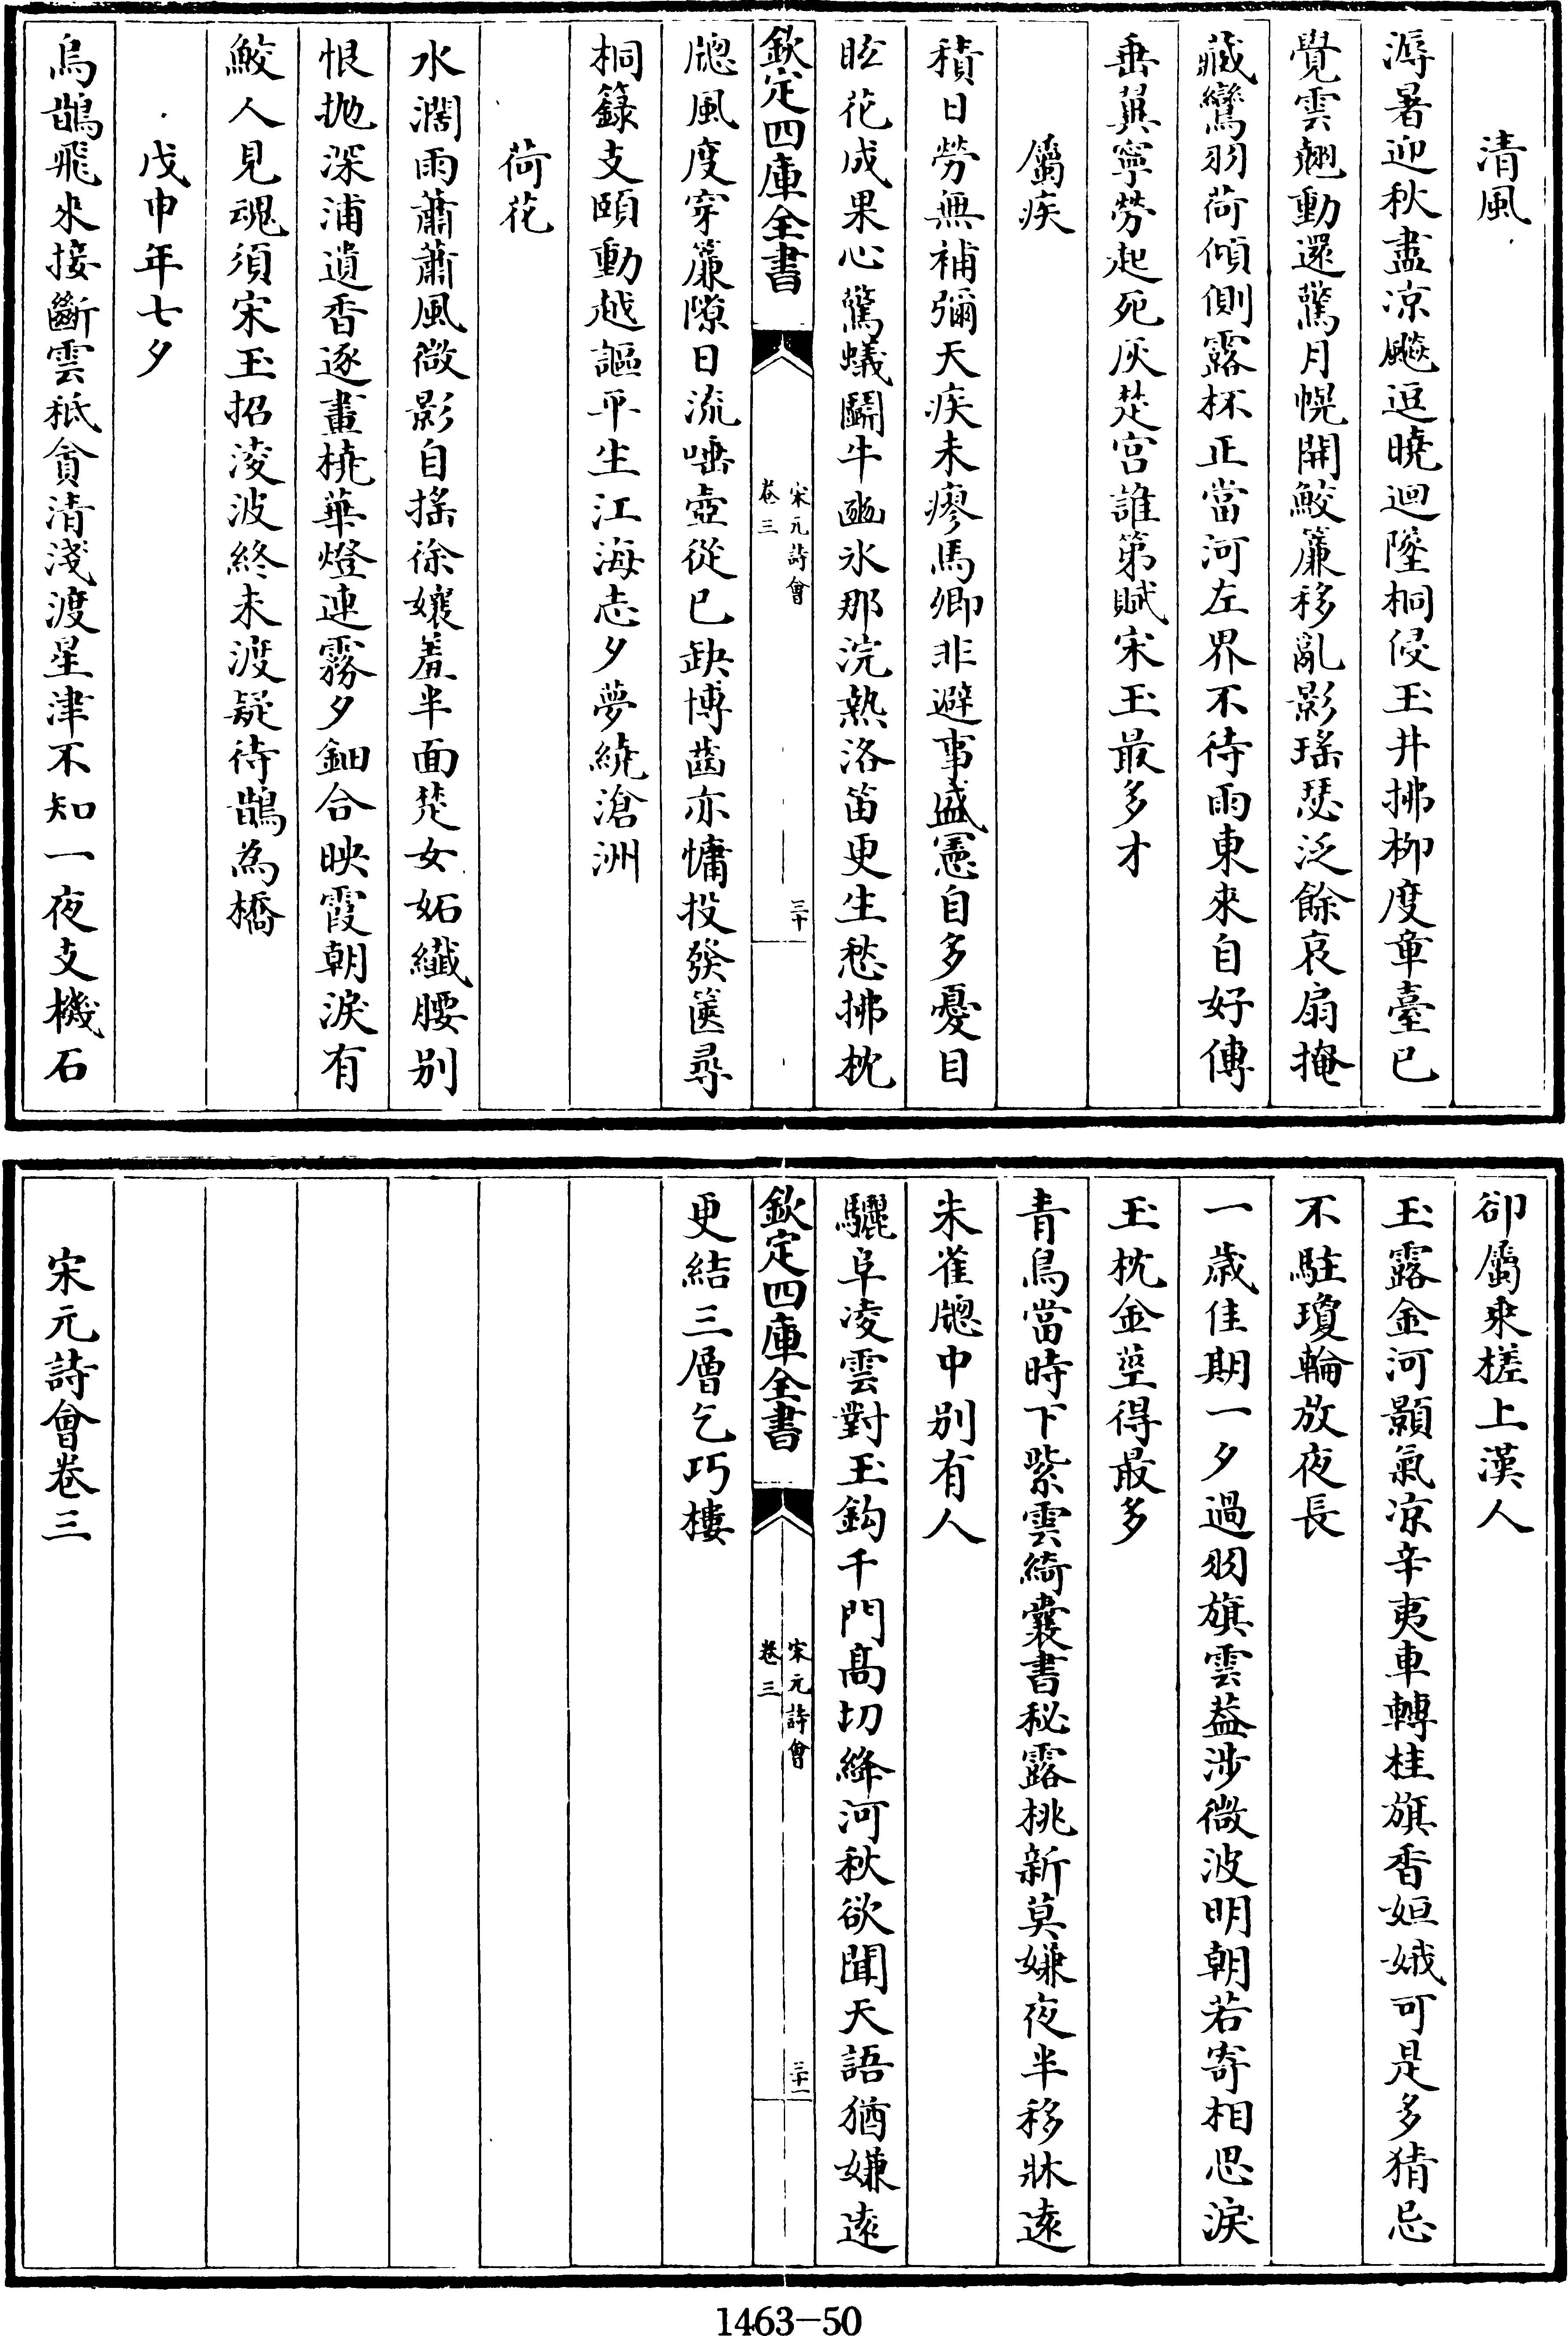 清風
溽暑迎秋盡凉飈逗曉迴墜桐侵玉井拂栁度章臺已
覺雲翹動還驚月幌開鮫簾移亂影瑤瑟泛餘哀扇掩
藏鸞羽荷傾側露杯正當河左界不待雨東來自好傳
垂翼寧勞起死灰楚宫誰第賦宋玉最多才
屬疾
積日勞無補彌天疾未瘳馬卿非避事盛憲自多憂目
眩花成果心驚蟻鬭牛豳氷那浣熱洛笛更生愁拂枕
欽定四庫全書
宋元詩會
卷三
三十
牕風度穿簾隙日流唾壺從已缺博齒亦慵投發篋尋
桐籙支頤動越謳平生江海志夕夢繞滄洲
荷花
水濶雨蕭蕭風微影自搖徐孃羞半面楚女妬纖腰别
恨抛深浦遺香逐畫橈華燈連霧夕鈿合映霞朝淚有
鮫人見魂須宋玉招淩波終未渡疑待鵲為橋
戊申年七夕
烏鵲飛來接斷雲秖貪清淺渡星津不知一夜支機石
卻屬乘槎上漢人
玉露金河顥氣凉辛夷車轉桂旗香姮娥可是多猜忌
不駐瓊輪放夜長
一歲佳期一夕過羽旗雲葢涉微波明朝若寄相思淚
玉枕金莖得最多
青鳥當時下紫雲綺囊書秘露桃新莫嫌夜半移牀遠
朱雀牕中别有人
驪阜凌雲對玉鈎千門髙切絳河秋欲聞天語猶嫌遠
欽定四庫全書
宋元詩會
卷三
三十一
更結三層乞巧樓
宋元詩會卷三
1463-50